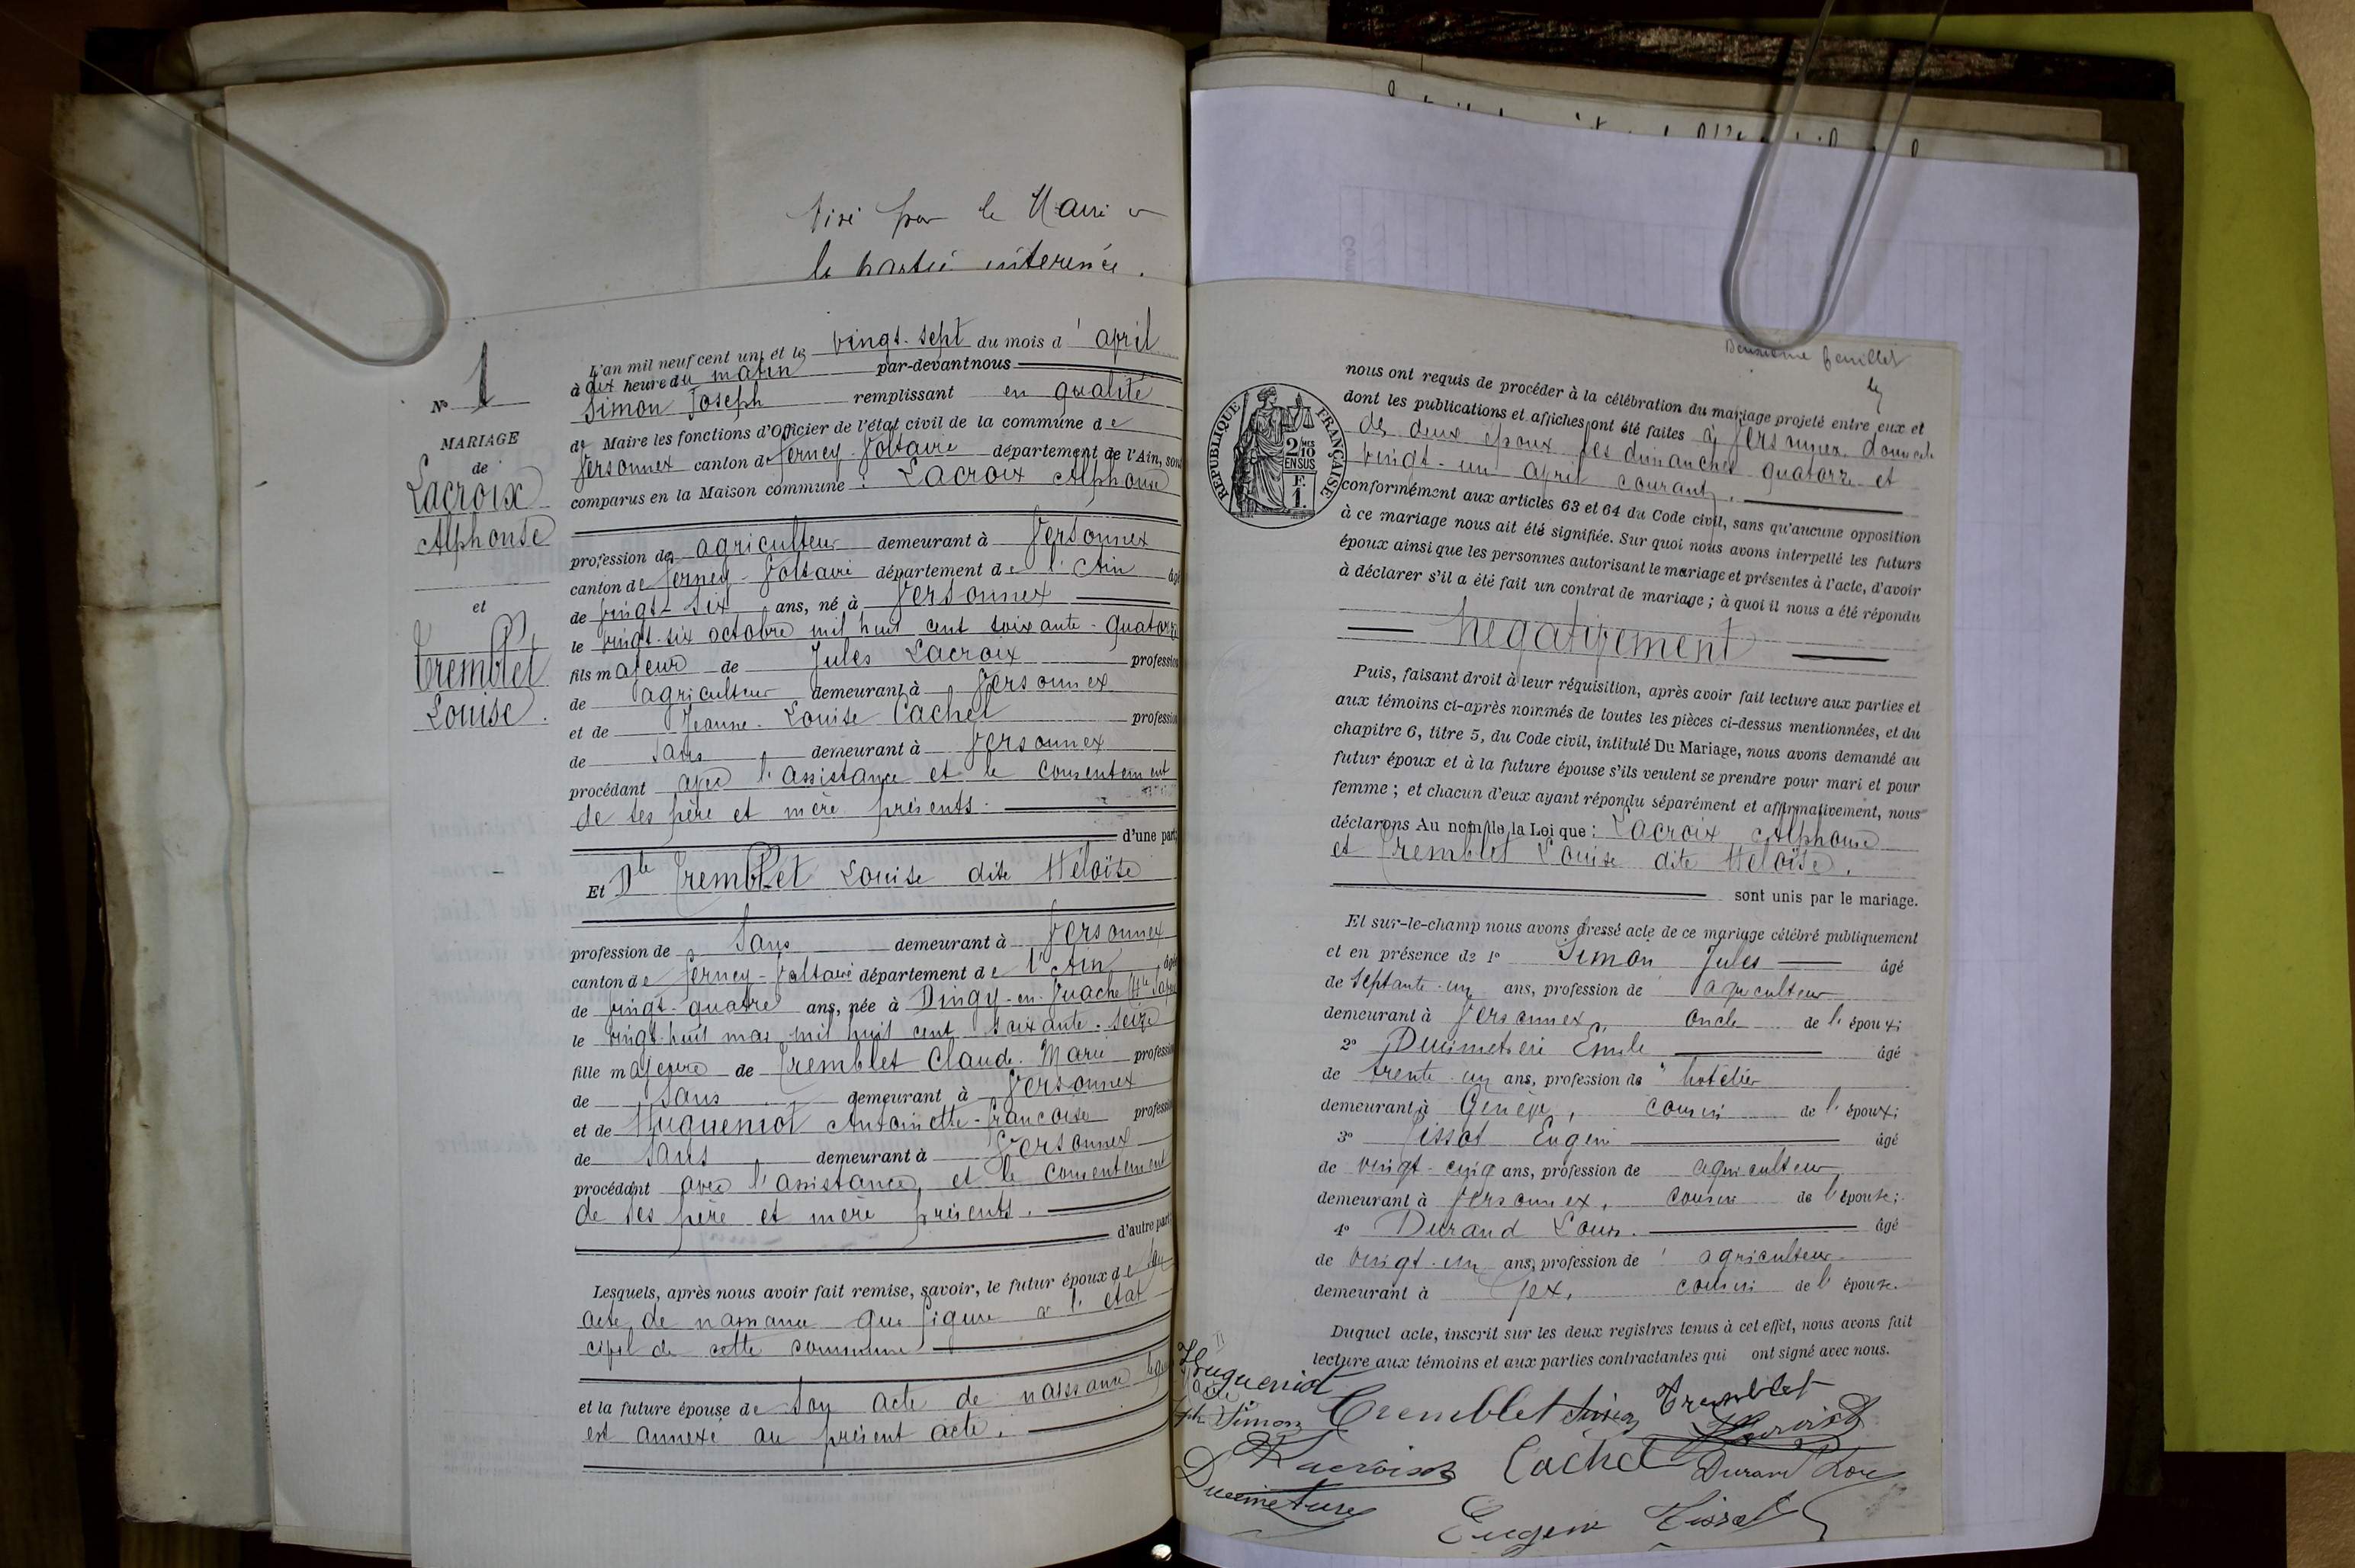 Visé par le Maire
la partie intéressée.
N° 1
MARIAGE
de
Lacroix
Alphonse
et
Tremblet
Louise.
L'an mil neuf cent un, et le vingt-sept du mois d'april
à dix heure du matin par-devant nous
Simon Joseph remplissant en qualité
de Maire les fonctions d'Officier de l'état civil de la commune de
Versonnex canton de Ferney-Voltaire département de l'Ain, sont
comparus en la Maison commune : Lacroix Alphonse
profession de agriculteur demeurant à Versonnex
canton de Ferney-Voltaire département de l'Ain âgé
de vingt-six ans, né à Versonnex
le vingt-six octobre mil huit cent soixante-quatorze
fils majeur de Jules Lacroix profession
de agriculteur demeurant à Versonnex
et de Jeanne-Louise Cachet profession
de sans demeurant à Versonnex
procédant avec l'assistance et le consentement
de ses père et mère présents.
d'une part;
Et Dlle Tremblet Louise dite Héloïse
profession de sans demeurant à Versonnex
canton de Ferney-Voltaire département de l'Ain, âgée
de vingt-quatre ans, née à Dingy-en-Vuache
le vingt-huit mai mil huit cent soixante-seize
fille majeure de Tremblet Claude-Marie profession
de sans demeurant à Versonnex
et de Hugueniot Antoinette-Françoise profession
de sans demeurant à Versonnex
procédant avec l'assistance, et le consentement
de ses père et mère présents.
d'autre part;
Lesquels, après nous avoir fait remise, savoir, le futur époux de son
acte de naissance que figure à l'état
civil de cette commune
et la future épouse de son acte de naissance
est annexé au présent acte.
Deuxième feuillet
nous ont requis de procéder à la célébration du mariage projeté entre eux et
dont les publications et affiches ont été faites à Versonnex, domicile
des deux époux les dimanches quatorze et
vingt-un april courant.
REPUBLIQUE FRANÇAISE
2/10 EN SUS
F. 1.
conformément aux articles 63 et 64 du Code civil, sans qu'aucune opposition
à ce mariage nous ait été signifiée. Sur quoi nous avons interpellé les futurs
époux ainsi que les personnes autorisant le mariage et présentes à l'acte, d'avoir
à déclarer s'il a été fait un contrat de mariage ; à quoi il nous a été répondu
négativement
Puis, faisant droit à leur réquisition, après avoir fait lecture aux parties et
aux témoins ci-après nommés de toutes les pièces ci-dessus mentionnées, et du
chapitre 6, titre 5, du Code civil, intitulé Du Mariage, nous avons demandé au
futur époux et à la future épouse s'ils veulent se prendre pour mari et pour
femme ; et chacun d'eux ayant répondu séparément et affirmativement, nous
déclarons Au nom de la Loi que : Lacroix Alphonse
et Tremblet Louise dite Héloïse.
sont unis par le mariage.
Et sur-le-champ nous avons dressé acte de ce mariage célébré publiquement
et en présence de 1° Simon Jules âgé
de septante-un ans, profession de agriculteur
demeurant à Versonnex, oncle de l'époux;
2° Dusimetière Emile âgé
de trente-un ans, profession de hotelier
demeurant à Genève, cousin de l'époux;
3° Tissot Eugène âgé
de vingt-cinq ans, profession de agriculteur
demeurant à Versonnex, cousin de l'épouse;
4° Durand Louis. âgé
de vingt-un ans, profession de agriculteur.
demeurant à Gex, cousin de l'épouse.
Duquel acte, inscrit sur les deux registres tenus à cet effet, nous avons fait
lecture aux témoins et aux parties contractantes qui ont signé avec nous.
Hugueniot
Simon Tremblet Tremblet
Lacroix Cachet Durand Louis
Eugène Tissot